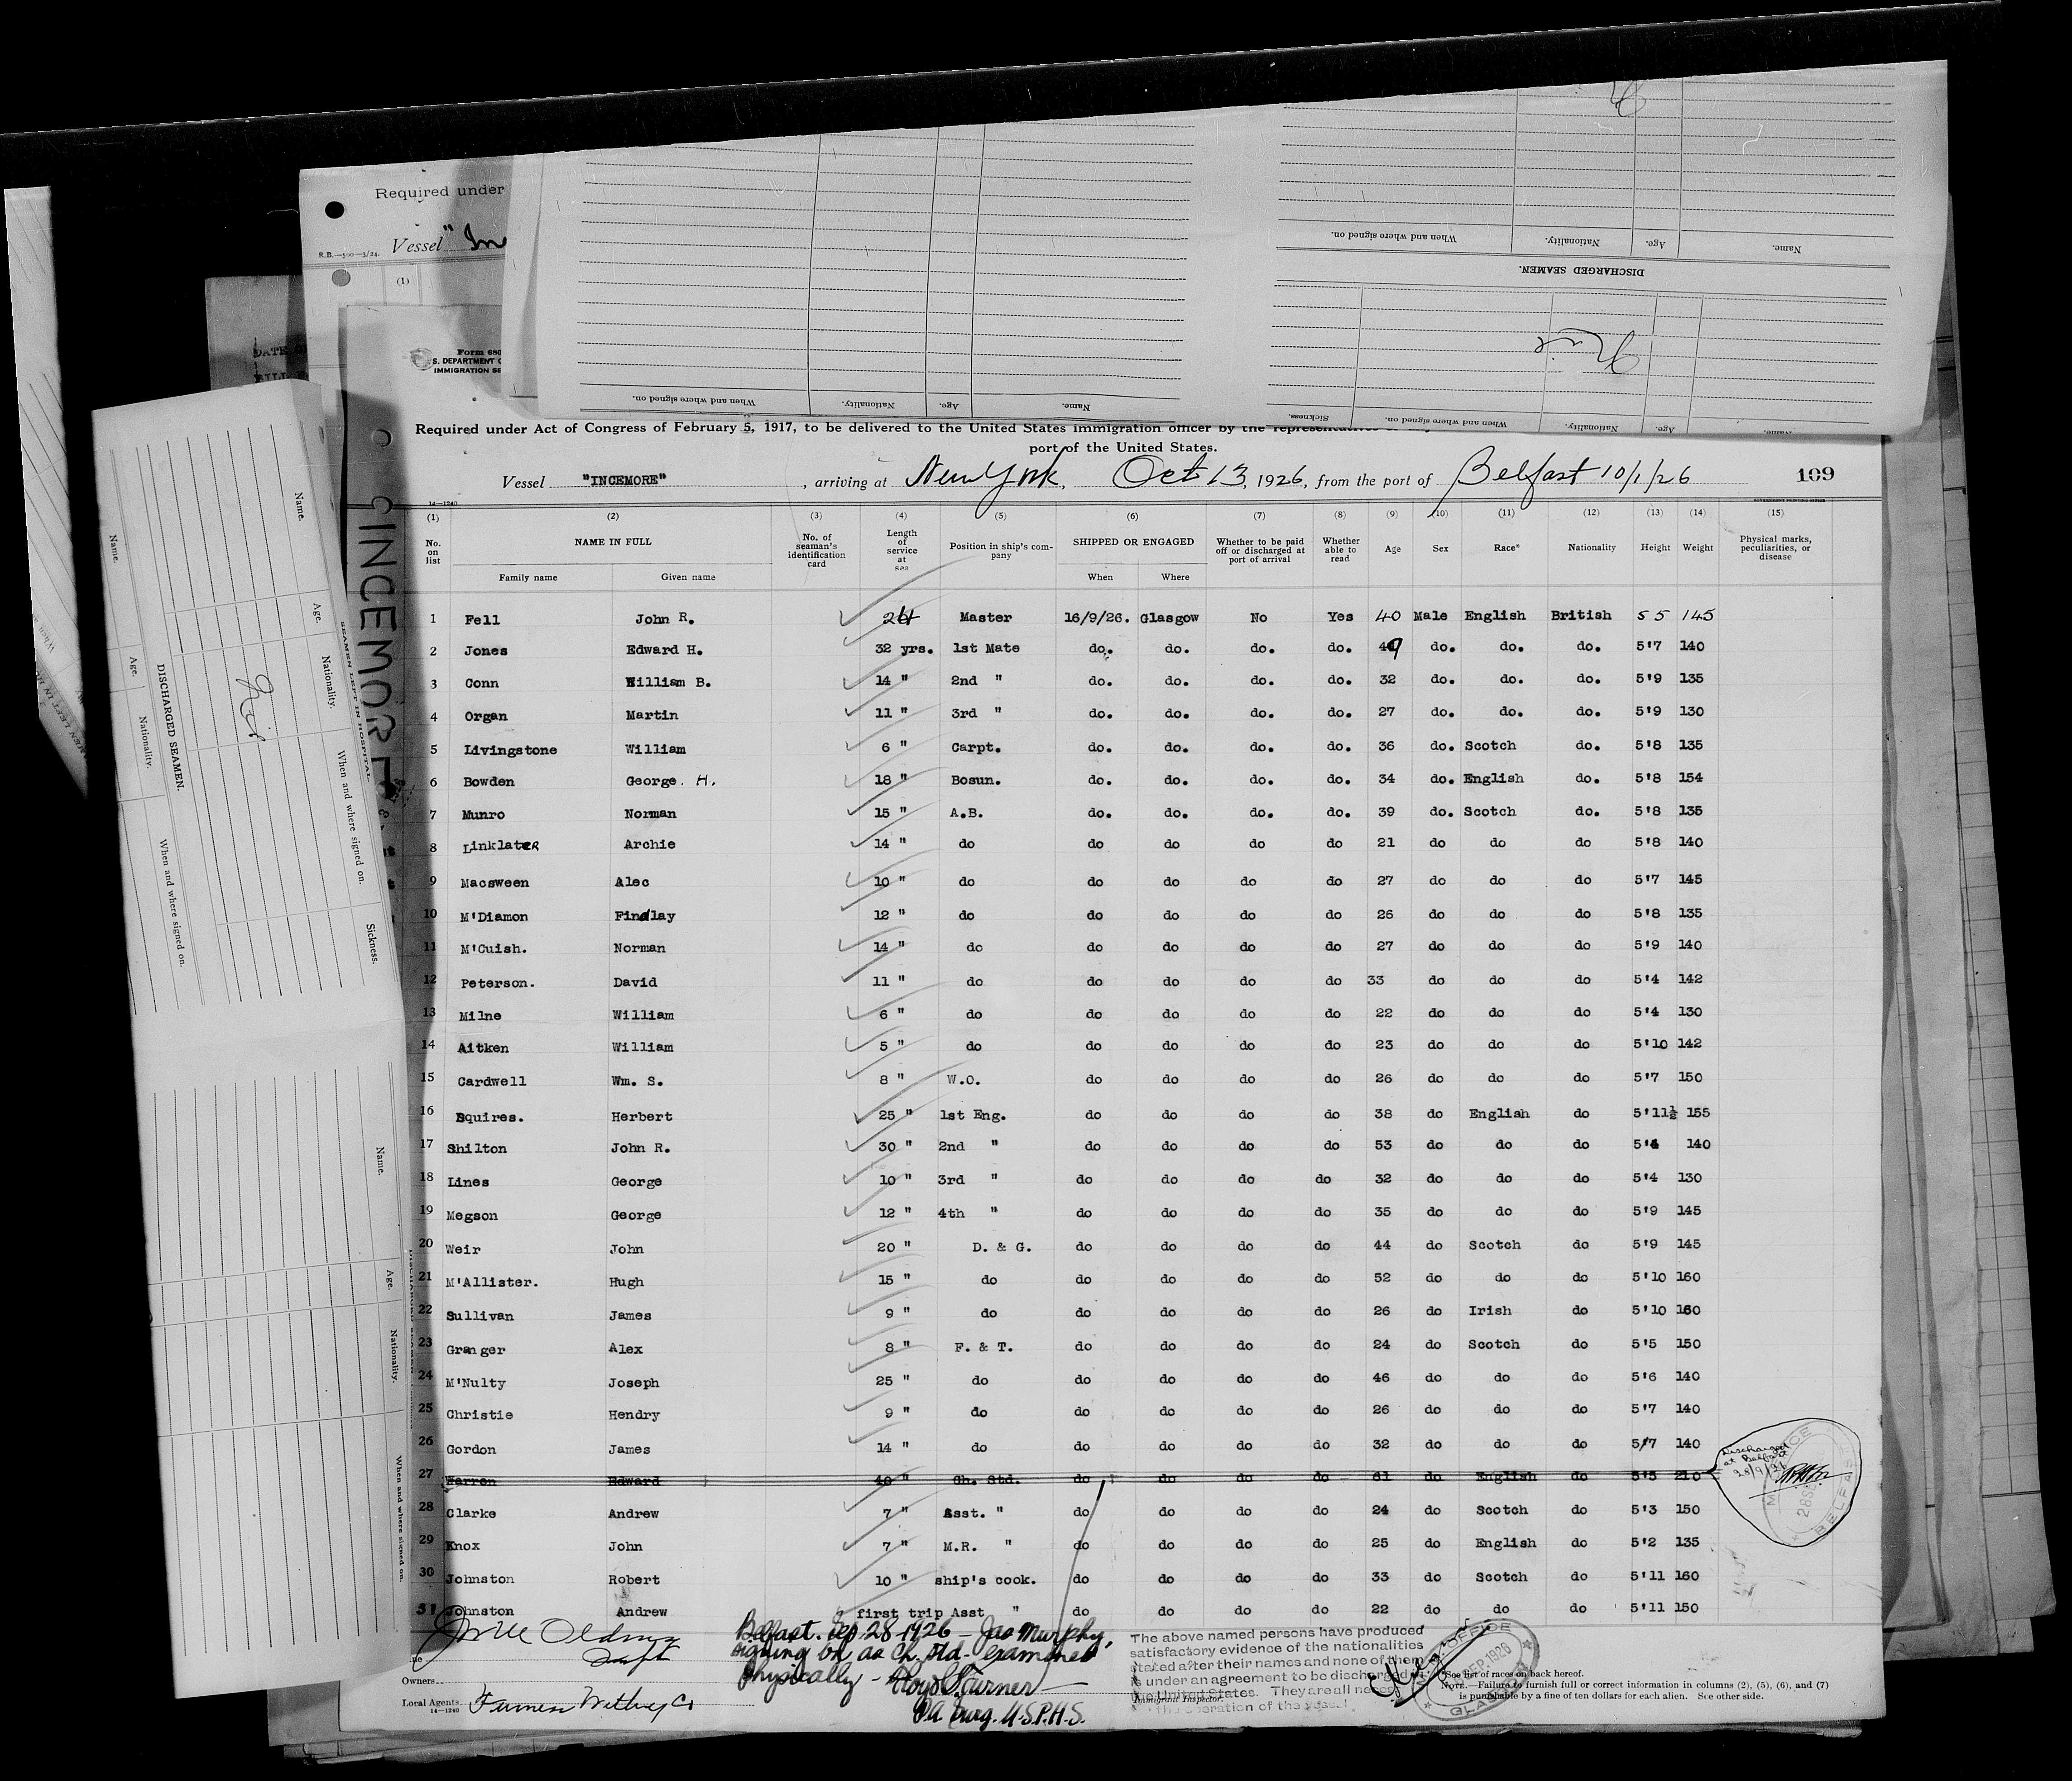 Required under
R.B.—500—3/24.
Vessel "In
(1)
DATE O
Form 680
S. DEPARTMENT O
IMMIGRATION SE
Name.
Age.
Nationality.
When and where signed on.
DISCHARGED SEAMEN.
Nil
Name.
Age.
Nationality.
When and where signed on.
Sickness.
Name.
Age.
Nationality.
When and where signed on.
Name.
Age.
Nationality.
When and where signed on.
Sickness.
SEAMEN LEFT IN HOSPITAL.
Nil
DISCHARGED SEAMEN.
Name.
Age.
Nationality.
When and where signed on.
Name.
Age.
Nationality.
When and where signed on.
INCEMORE
Required under Act of Congress of February 5, 1917, to be delivered to the United States immigration officer by the
port of the United States.
Vessel "INCEMORE", arriving at New York, Oct 13, 1926, from the port of Belfast 10/1/26 109
14—1240
(1) (2) (3) (4) (5) (6) (7) (8) (9) (10) (11) (12) (13) (14) (15)
No. on list NAME IN FULL No. of seaman's identification card Length of service at sea Position in ship's company SHIPPED OR ENGAGED Whether to be paid off or discharged at port of arrival Whether able to read Age Sex Race* Nationality Height Weight Physical marks, peculiarities, or disease
Family name Given name When Where
1 Fell John R. 24 Master 16/9/26. Glasgow No Yes 40 Male English British 5 5 145
2 Jones Edward H. 32 yrs. 1st Mate do. do. do. do. 49 do. do. do. 5'7 140
3 Conn William B. 14 " 2nd " do. do. do. do. 32 do. do. do. 5'9 135
4 Organ Martin 11 " 3rd " do. do. do. do. 27 do. do. do. 5'9 130
5 Livingstone William 6 " Carpt. do. do. do. do. 36 do. Scotch do. 5'8 135
6 Bowden George. H. 18 " Bosun. do. do. do. do. 34 do. English do. 5'8 154
7 Munro Norman 15 " A.B. do. do. do. do. 39 do. Scotch do. 5'8 135
8 Linklater Archie 14 " do do do do do 21 do do do 5'8 140
9 Macsween Alec 10 " do do do do do 27 do do do 5'7 145
10 M'Diamon Findlay 12 " do do do do do 26 do do do 5'8 135
11 M'Cuish. Norman 14 " do do do do do 27 do do do 5'9 140
12 Peterson. David 11 " do do do do do 33 do do do 5'4 142
13 Milne William 6 " do do do do do 22 do do do 5'4 130
14 Aitken William 5 " do do do do do 23 do do do 5'10 142
15 Cardwell Wm. S. 8 " W.O. do do do do 26 do do do 5'7 150
16 Squires. Herbert 25 " 1st Eng. do do do do 38 do English do 5'11½ 155
17 Shilton John R. 30 " 2nd " do do do do 53 do do do 5'4 140
18 Lines George 10 " 3rd " do do do do 32 do do do 5'4 130
19 Megson George 12 " 4th " do do do do 35 do do do 5'9 145
20 Weir John 20 " D. & G. do do do do 44 do Scotch do 5'9 145
21 M'Allister. Hugh 15 " do do do do do 52 do do do 5'10 160
22 Sullivan James 9 " do do do do do 26 do Irish do 5'10 160
23 Granger Alex 8 " F. & T. do do do do 24 do Scotch do 5'5 150
24 M'Nulty Joseph 25 " do do do do do 46 do do do 5'6 140
25 Christie Hendry 9 " do do do do do 26 do do do 5'7 140
26 Gordon James 14 " do do do do do 32 do do do 5/7 140
27 Warren Edward 48 " Ch. Std. do do do do 61 do English do 5'5 210
Discharged at Belfast 28/9/26
28 Clarke Andrew 7 " Asst. " do do do do 24 do Scotch do 5'3 150
29 Knox John 7 " M.R. " do do do do 25 do English do 5'2 135
30 Johnston Robert 10 " ship's cook. do do do do 33 do Scotch do 5'11 160
31 Johnston Andrew first trip Asst " do do do do 22 do do do 5'11 150
Belfast. Sep. 28-1926 - Jas Murphy,
signing on as Ch. Std. examined
physically -
Surg. U.S.P.H.S.
The above named persons have produced
satisfactory evidence of the nationalities
stated after their names and none of them
is under an agreement to be discharged in
the United States. They are all
the operation of the vessel.
Immigrant Inspector.
Owners
Local Agents Furness Withy Co
14—1240
*See list of races on back hereof.
NOTE.—Failure to furnish full or correct information in columns (2), (5), (6), and (7)
is punishable by a fine of ten dollars for each alien. See other side.
OFFICE
SEP 1926
GLASGOW
OFFICE
28 SE
BELFAST